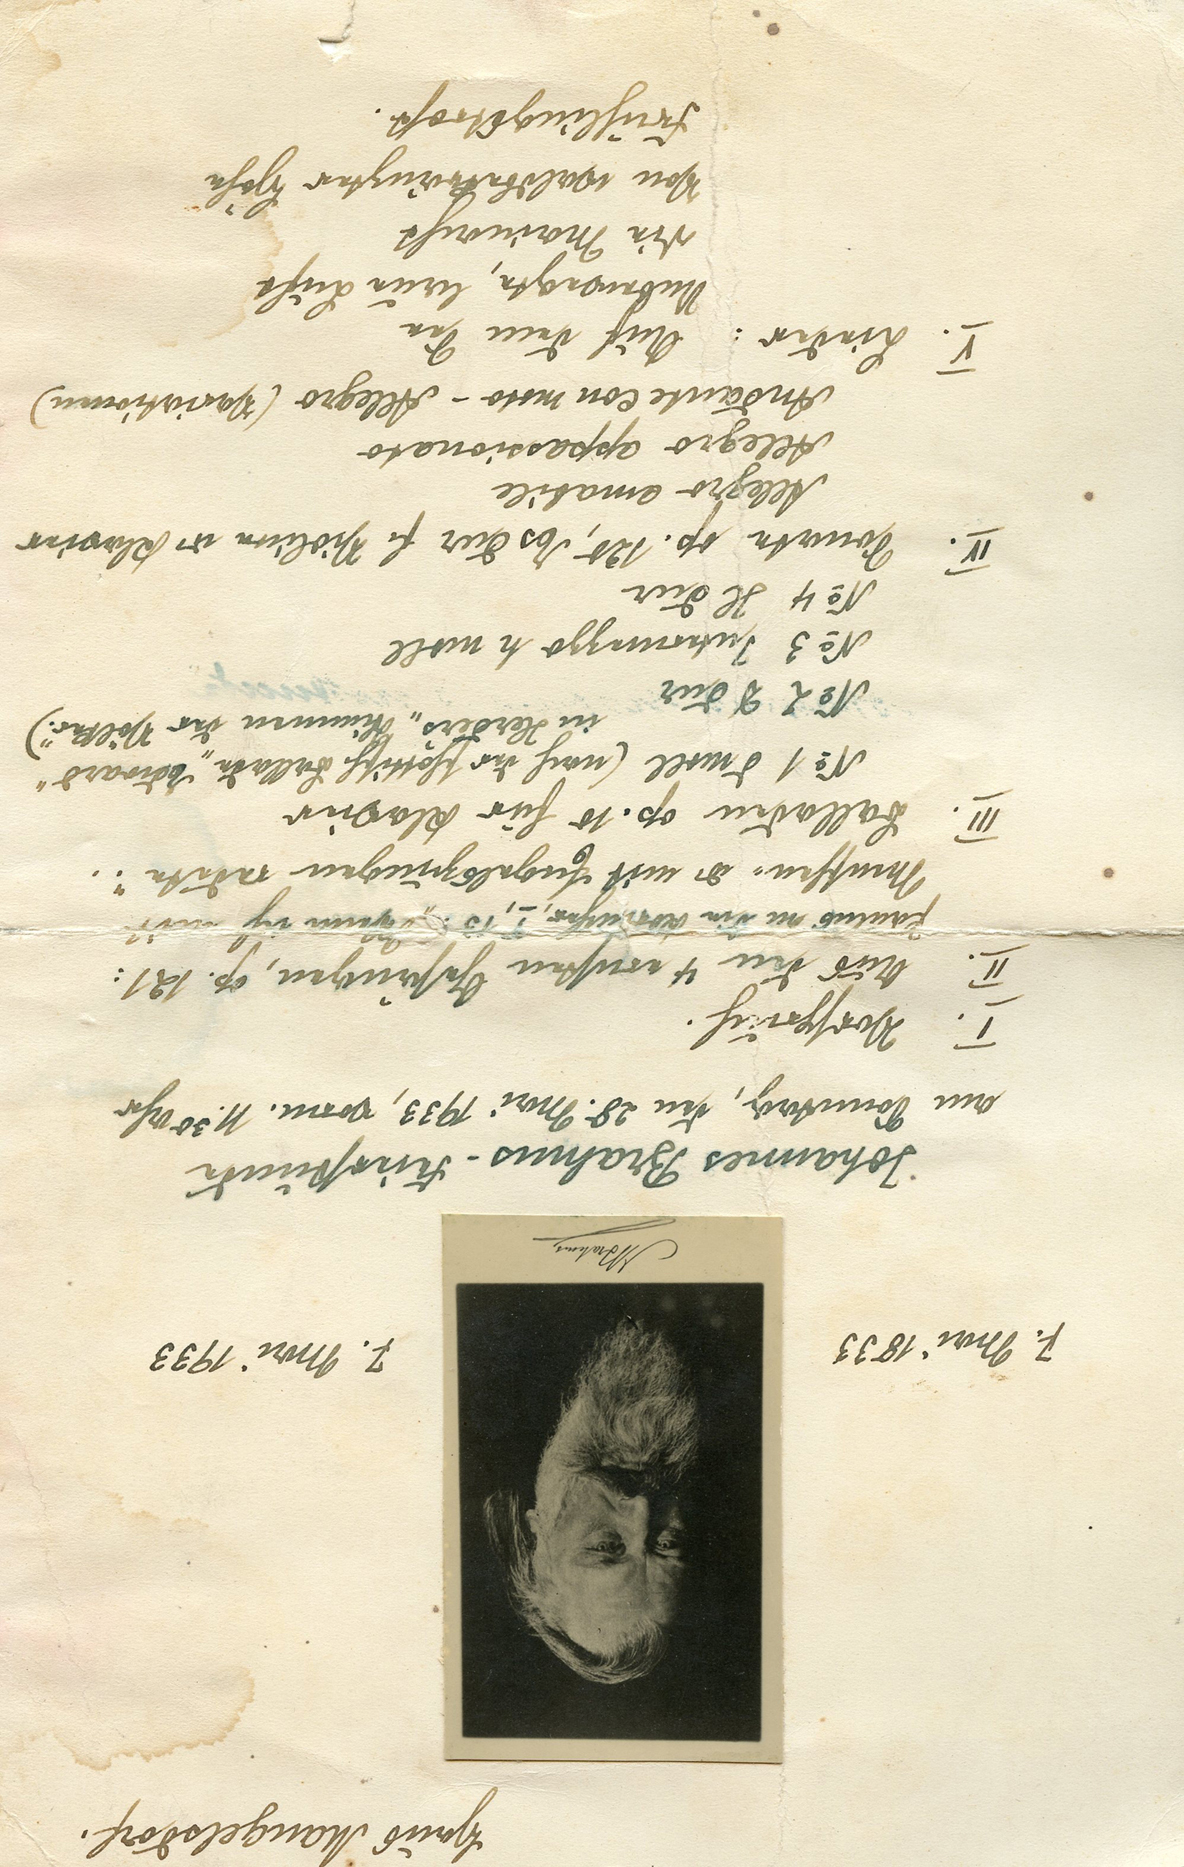 Haus Mangelsdorf.
7. Mai 1833
7. Mai 1933
J Brahms
Johannes Brahms - Feierstunde
am Sonntag, den 28. Mai 1933, vorm. 11.30 Uhr
I. Vorspruch.
II. Aus den 4 ernsten Gesängen, op. 121:
Paulus an die Korinther, I, 13: „Wenn ich mit
Menschen- u mit Engelszungen redete"..
III. Balladen op. 10 für Klavier
№ 1 d moll (nach der schottisch. Ballade „Edward"
in Herders „Stimmen der Völker")
№ 2 D dur
№ 3 Intermezzo h moll
№ 4 H dur
IV. Sonate op. 120, Es dur f. Violine u Klavier
Allegro amabile
Allegro appassionato
Andante con moto - Allegro (Variationen)
V. Lieder: Auf dem See
Unbewegte, laue Luft
Die Mainacht
Von waldbekränzter Höhe
Frühlingstrost.